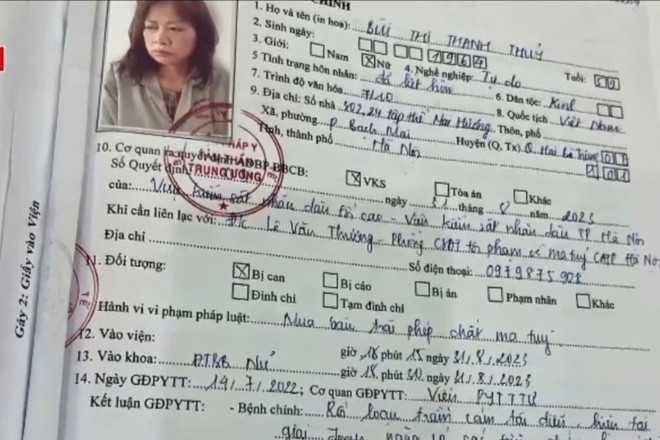 CHÍNH
1. Họ và tên (in hoa): BÙI THỊ THANH THUỶ
2. Sinh ngày: 1964 Tuổi: 59
3. Giới: Nam Nữ 4. Nghề nghiệp: Tự do
5 Tình trạng hôn nhân: đã kết hôn 6. Dân tộc: Kinh
7. Trình độ văn hóa 7/10 8. Quốc tịch: Việt Nam
9. Địa chỉ: Số nhà 302.24 tập thể Mai Hương. Thôn, phố
Xã, phường P. Bạch Mai Huyện (Q, Tx) Q. Hai Bà Trưng
Tỉnh, thành phố Hà Nội
10. Cơ quan ra quyết định BBCB: VKS Tòa án Khác
TRUNG ƯƠNG
Số Quyết định ngày 31 tháng 8 năm 2023
của: Viện kiểm sát nhân dân tối cao - Viện kiểm sát nhân dân TP Hà Nội
Khi cần liên lạc với: Đ/c Lê Văn Thưởng - Phòng CSĐT tội phạm về ma tuý CATP Hà Nội
Địa chỉ Số điện thoại: 0979875908
11. Đối tượng: Bị can Bị cáo Bị án Phạm nhân Khác
Đình chỉ Tạm đình chỉ
Hành vi vi phạm pháp luật: Mua bán trái phép chất ma tuý
12. Vào viện: giờ 16 phút 15 ngày 31/8/2023
13. Vào khoa: ĐTBB Nữ giờ 18 phút 30 ngày 31/8/2023
14. Ngày GĐPYTT: 19/7/2022; Cơ quan GĐPYTT: Viện PYTTTƯ
Kết luận GĐPYTT: - Bệnh chính: Rối loạn trầm cảm tái diễn, hiện tại
giai
Gáy 2: Giấy vào Viện